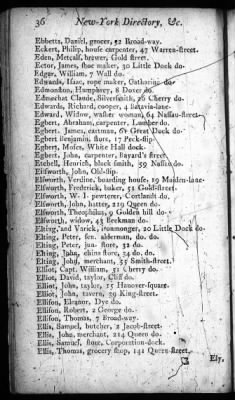 36 New-York Directory, &c.
Ebbetts, Daniel, grocer, 52 Broad-way.
Eckert, Philip, house carpenter, 47 Warren-street.
Eden, Metcalf, brewer, Gold street.
Ector, James, shoe maker, 30 Little Dock do.
Edgar, William, 7 Wall do.
Edwards, Isaac, rope maker, Catharine do.
Edmondson, Humphrey, 8 Dover do.
Edmechat Claude, Silversmith, 26 Cherry do.
Edwards, Richard, cooper, 4 Batavia-lane.
Edward, Widow, washer woman, 64 Nassau-street.
Egbert, Abraham, carpenter, Lumber do.
Egbert, James, eartman, 61 Great Dock do.
Egbert Benjamin, store, 17 Peck-slip.
Egbert, Moses, White Hall dock.
Egbert, John, carpenter, Bayard's street.
Eitchell, Henrich, black smith, 39 Nassau do.
Elsworth, John, Old-slip.
Elsworth, Verdine, boarding house, 19 Maiden-lane.
Elsworth, Frederick, baker, 51 Gold-street.
Elsworth, W. J. pewterer, Cortlandt do.
Elsworth, John, hatter, 219 Queen do.
Elsworth, Theophilus, 9 Golden hill do.
Elsworth, widow, 43 Beekman do.
Elting and Varick, ironmonger, 20 Little Dock do.
Elting, Peter, sen. alderman, do. do.
Elting, Peter, jun. store, 32 do.
Elting, John, china store, 34 do. do.
Elting, John, merchant, 35 Smith-street.
Elliot, Capt. William, 31 Cherry do.
Elliot, David, taylor, Cliff do.
Elliot, John, taylor, 15 Hanover-square.
Elliot, John, tavern, 39 King-street.
Ellison, Eleanor, Dye do.
Ellison, Robert, 2 George do.
Ellison, Thomas, 7 Broad-way.
Ellis, Samuel, butcher, 2 Jacob-street.
Ellis, John, merchant, 214 Queen do.
Ellis, Samuel, store, Corporation-dock.
Ellis, Thomas, grocery shop, 141 Queen-street.
Ely,